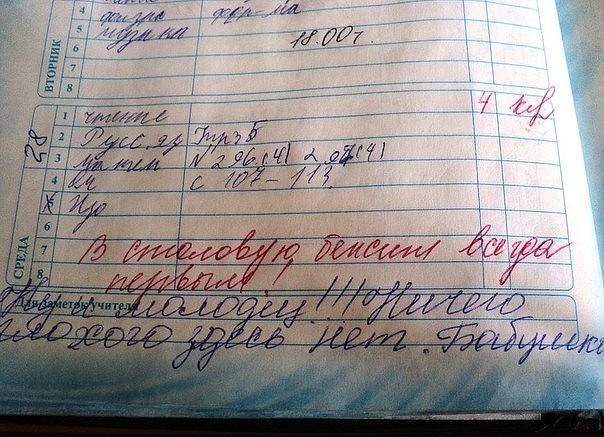 4 физик- фор-ма
5 музыка 18.00 г.
6
7
8
ВТОРНИК
28
1 чтение 4
2 Русс. яз Упрз 5
3 матем N 296.(4) 297(4)
4 с 107-113.
5 Изо
6
7 В столовую бежит всегда
8 первым!
СРЕДА
Для заметок учителя
Ну и молодец!!! Ничего
плохого здесь нет. Бабушка